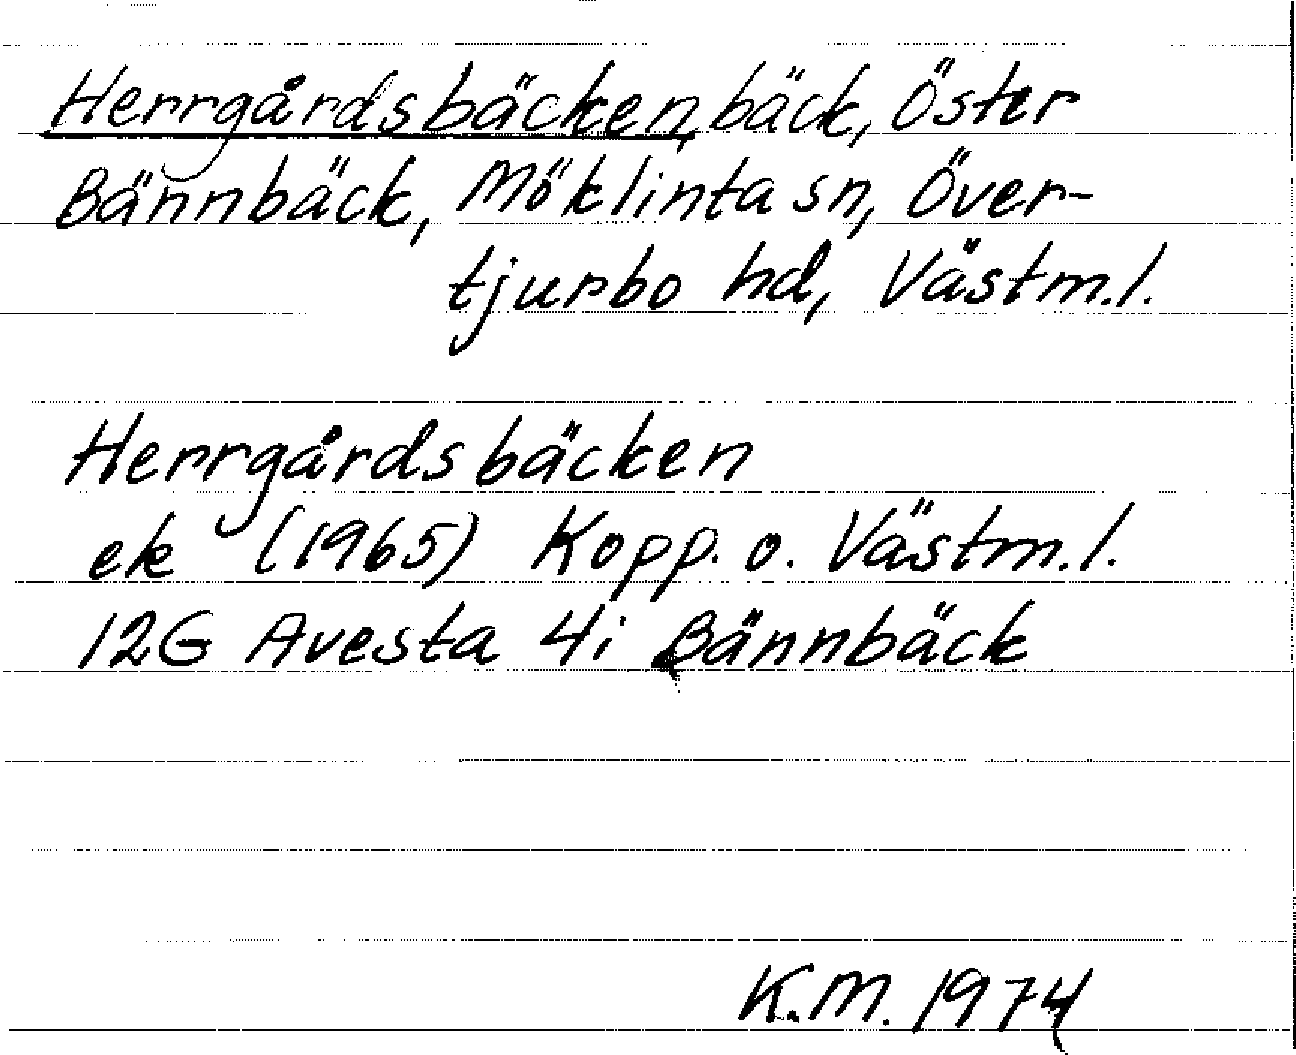 Herrgårdsbäcken, bäck, Öster
Bännbäck, Möklinta sn, Över-
tjurbo hd, Västm.l.
Herrgårdsbäcken
ek (1965) Kopp. o. Västm.l.
12G Avesta 4i Bännbäck
K.M. 1974